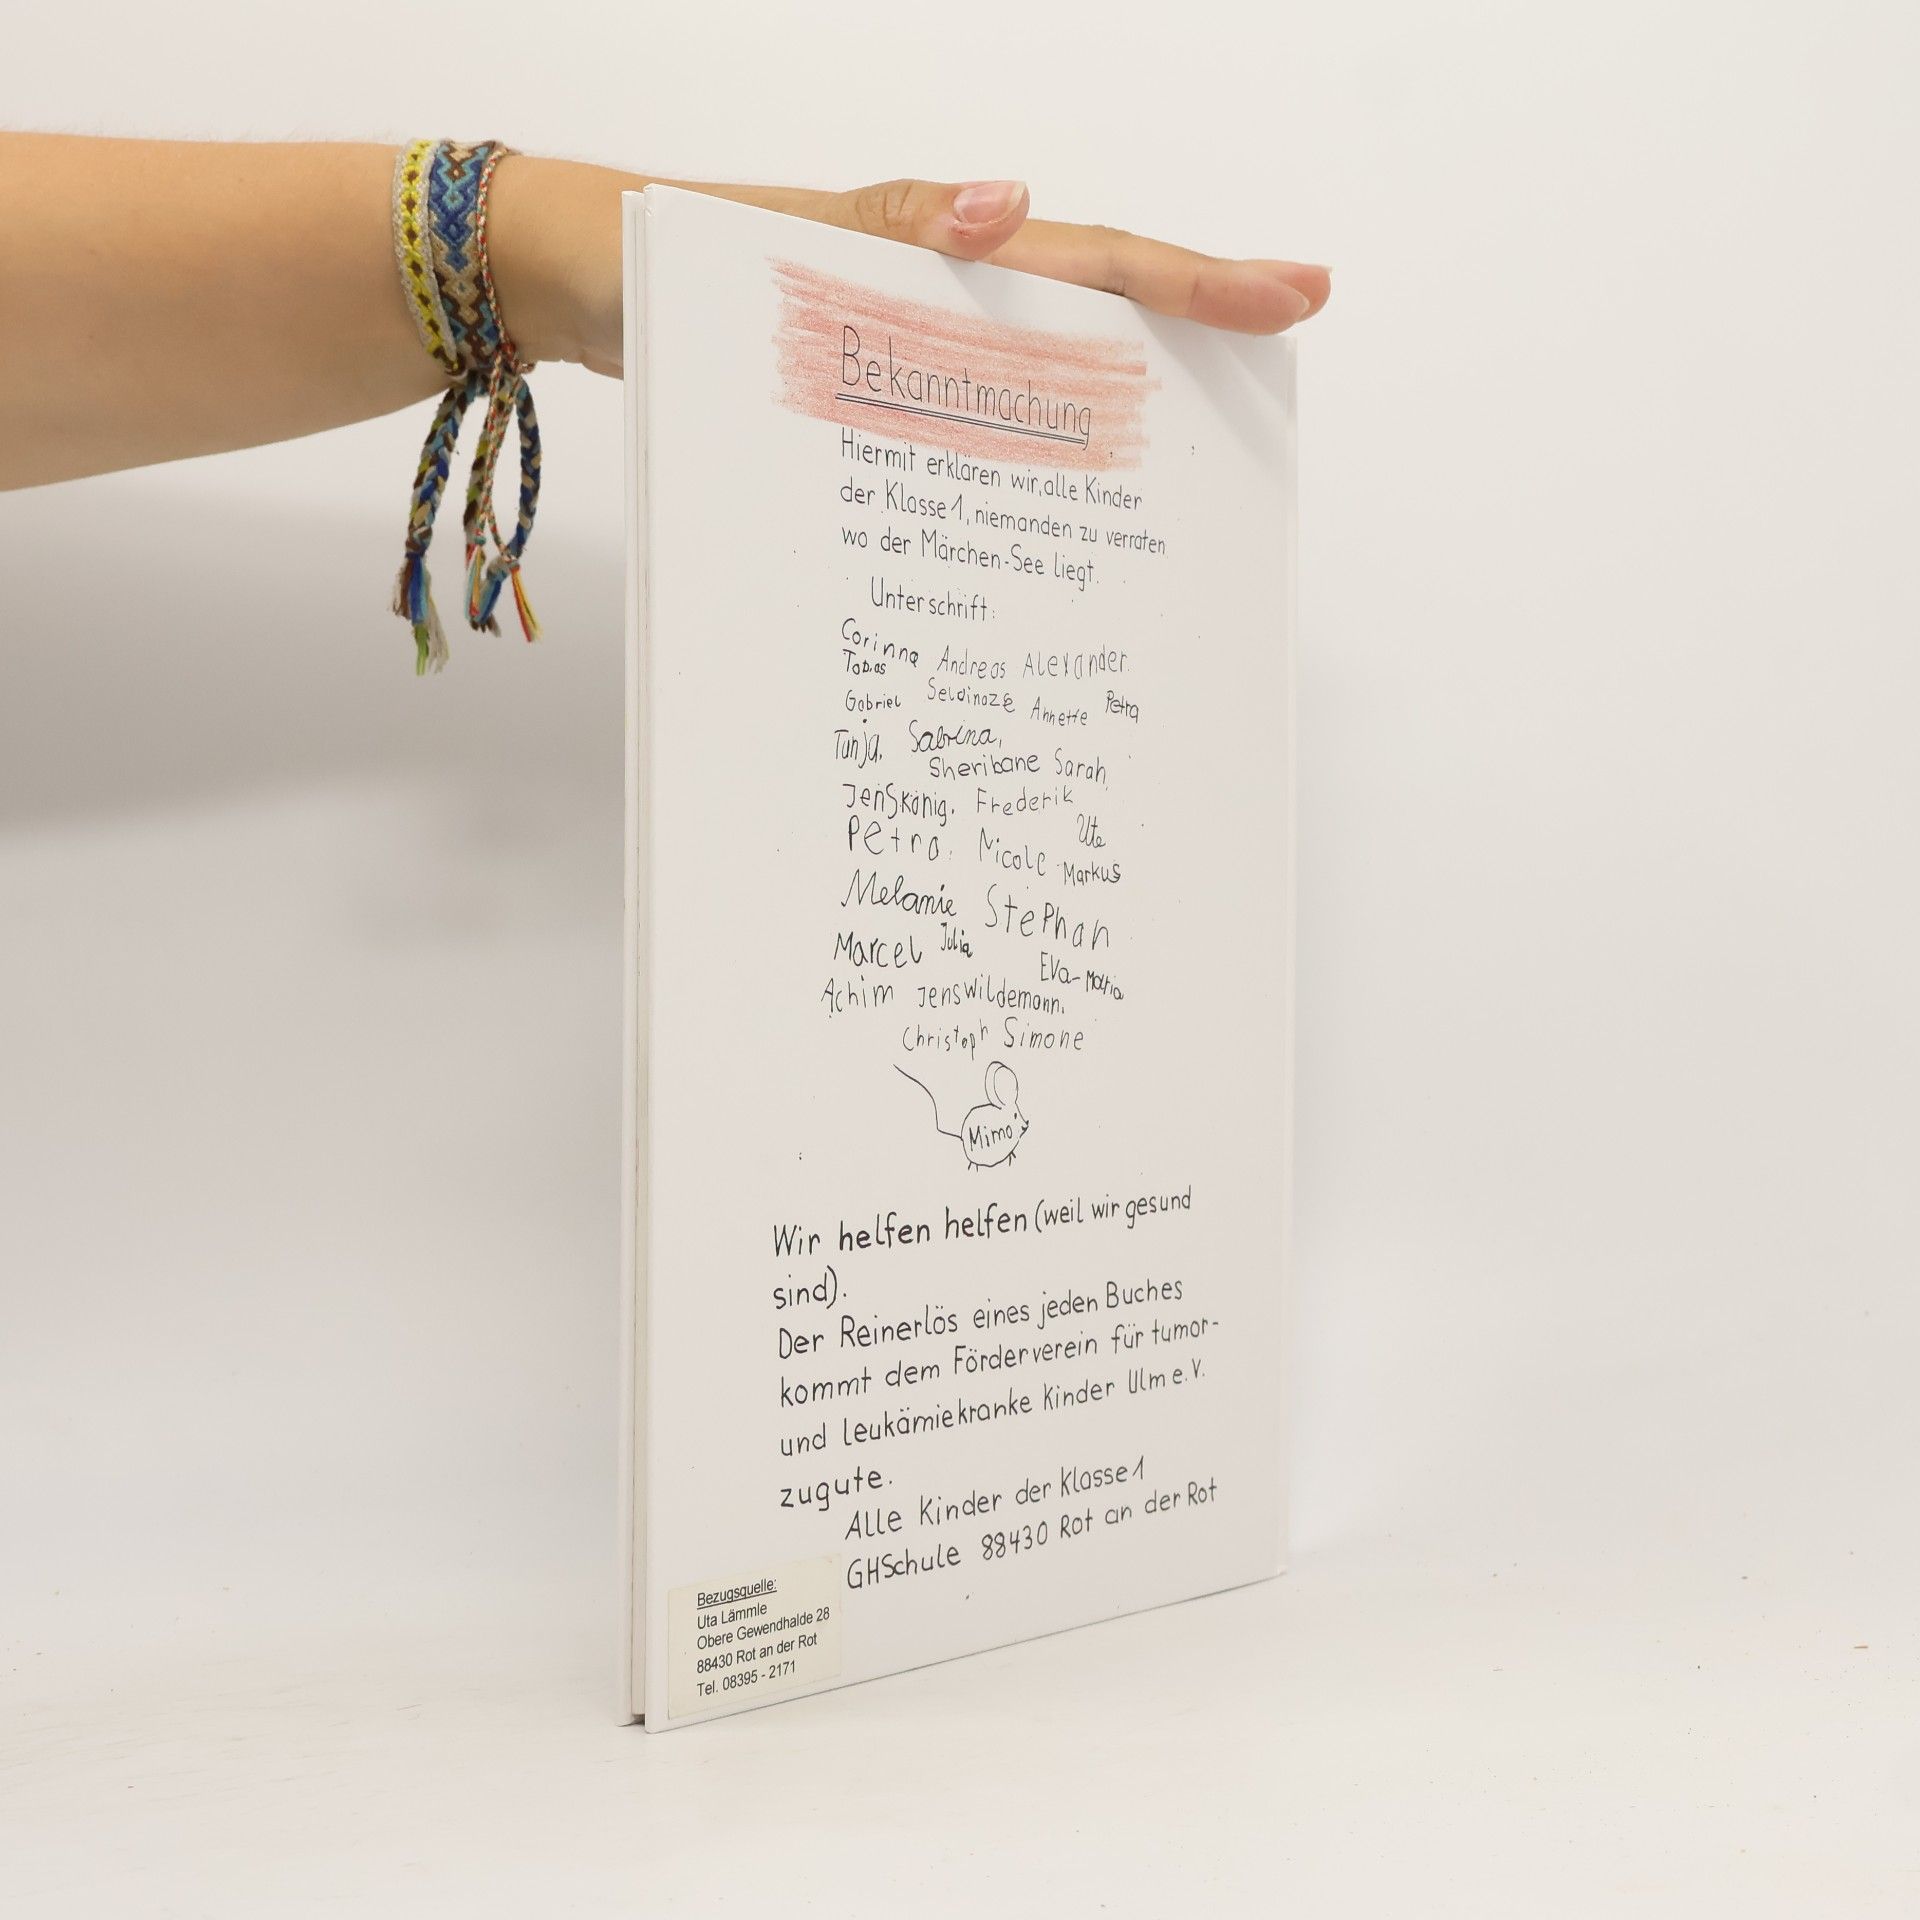 Bekanntmachung
Hiermit erklären wir, alle Kinder
der Klasse 1, niemanden zu verraten
wo der Märchen-See liegt.
Unterschrift:
Corinna Andreas Alexander.
Tobias
Gabriel Seldinaze Annette Petra
Tanja. Sabrina,
Sheribane Sarah,
Jens König. Frederik
Petra. Nicole Ute
Markus
Melanie Stephan
Marcel Julia
Eva-Maria
Achim Jens Wildemann.
Christoph Simone
Mimo
Wir helfen helfen (weil wir gesund
sind).
Der Reinerlös eines jeden Buches
kommt dem Förderverein für tumor-
und leukämiekranke Kinder Ulm e.V.
zugute.
Alle Kinder der Klasse 1
GHSchule 88430 Rot an der Rot
Bezugsquelle:
Uta Lämmle
Obere Gewendhalde 28
88430 Rot an der Rot
Tel. 08395 - 2171